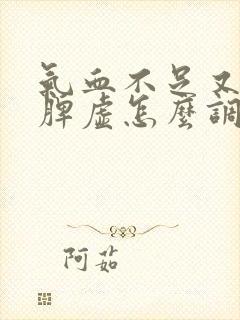 氣血不足又
脾虛怎麼調
阿茹